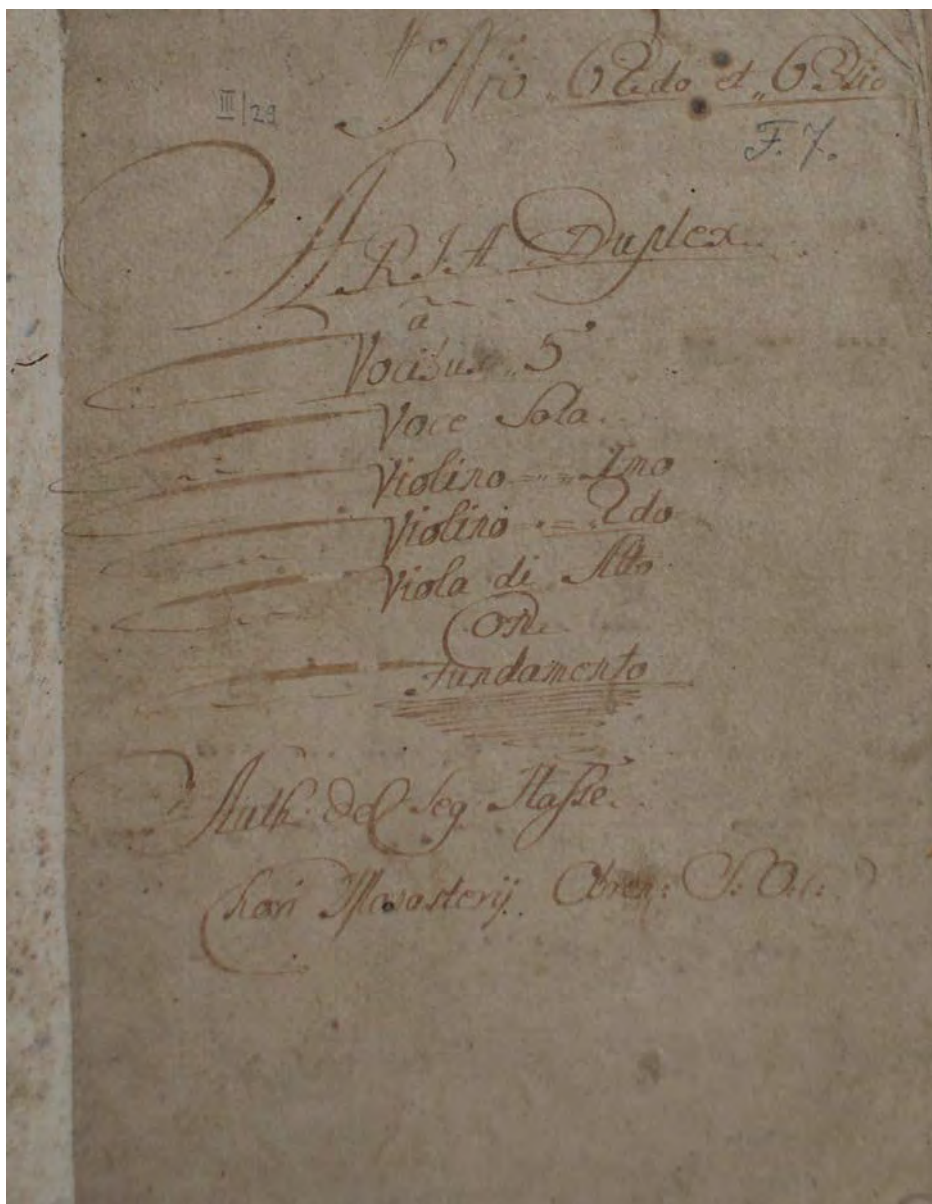 Nro 62do et 63tio
III/29
F. 7.
ARIA Duplex
a
Vocibus 5
Voce Sola.
Violino Imo
Violino 2do
Viola di Alto
Con
Fundamento
Auth: Del Seg. Hasse.
Chori Monasterij Obren: S: O: